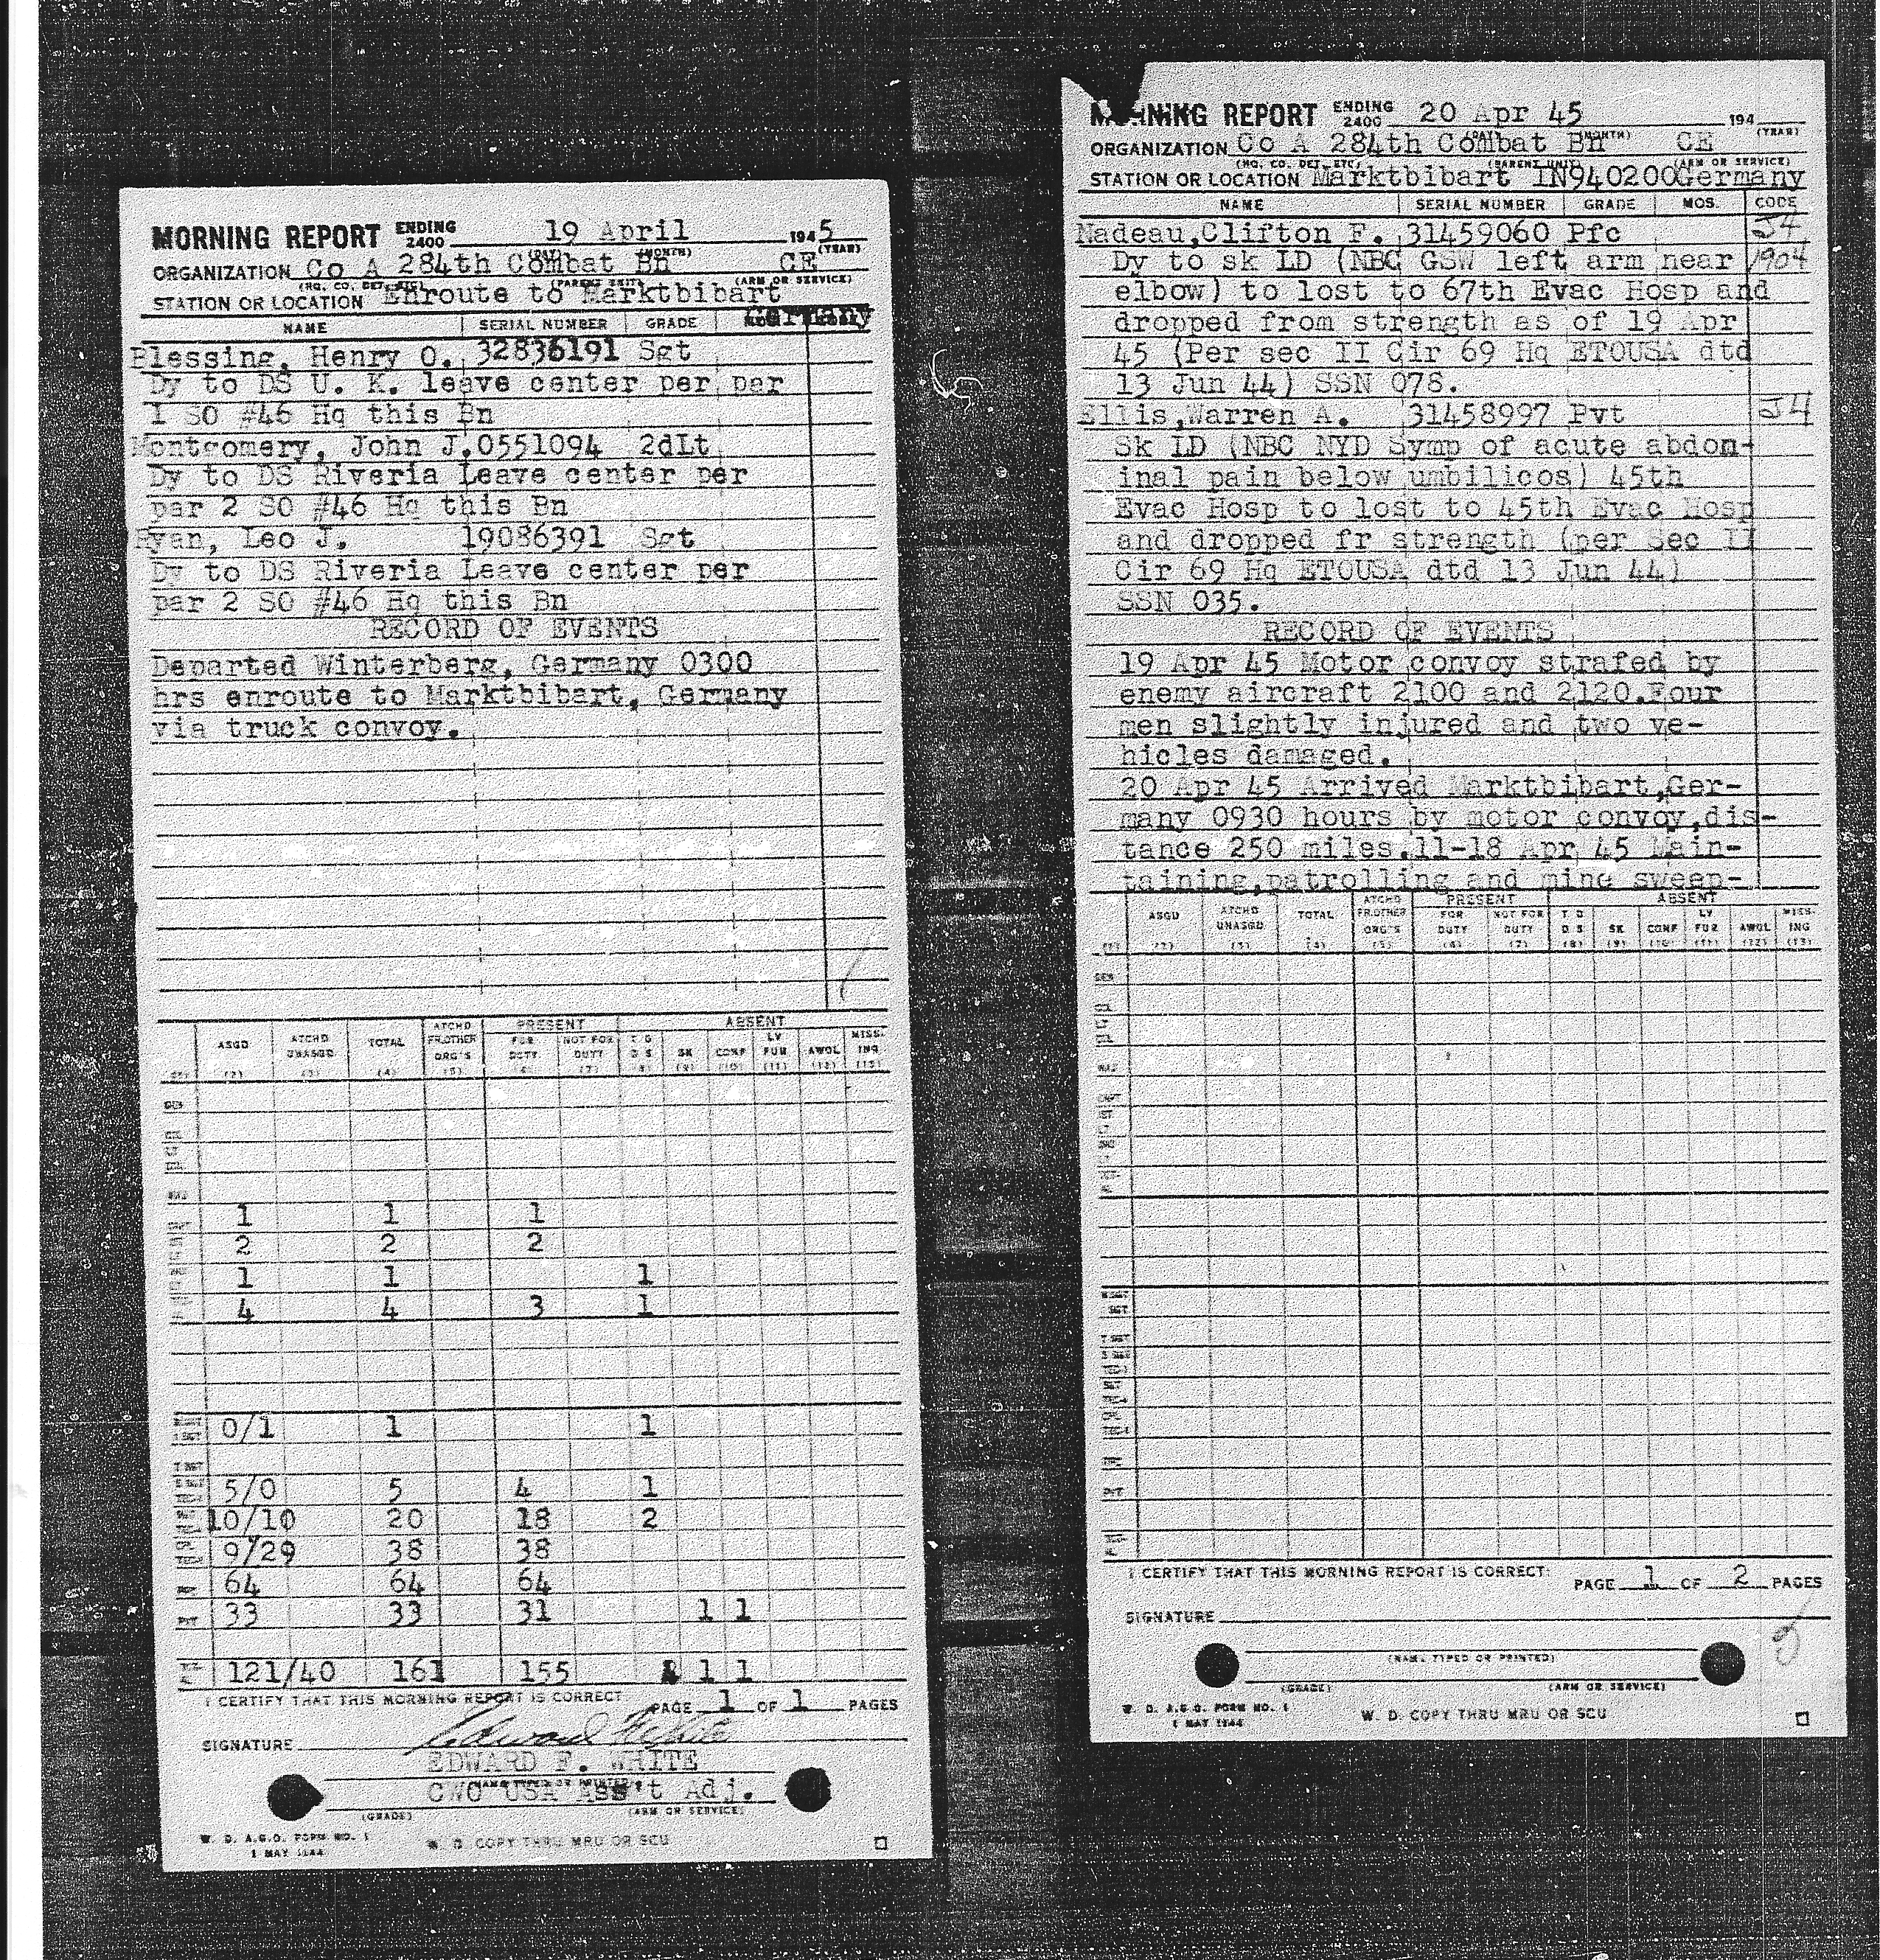 MORNING REPORT ENDING 2400 19 April 1945
(DAY) (MONTH) (YEAR)
ORGANIZATION Co A 284th Combat Bn CE
(HQ. CO. DET. ETC.) (PARENT UNIT) (ARM OR SERVICE)
STATION OR LOCATION Enroute to Marktbibart
Germany
NAME SERIAL NUMBER GRADE
Blessing, Henry O. 32836191 Sgt
Dy to DS U. K. leave center per par
1 SO #46 Hq this Bn
Montgomery, John J. 0551094 2dLt
Dy to DS Riveria Leave center per
par 2 SO #46 Hq this Bn
Ryan, Leo J. 19086391 Sgt
Dy to DS Riveria Leave center per
par 2 SO #46 Hq this Bn
RECORD OF EVENTS
Departed Winterberg, Germany 0300
hrs enroute to Marktbibart, Germany
via truck convoy.
ATCHD PRESENT ABSENT
ASGD ATCHD UNASGD TOTAL FR.OTHER ORG'S FOR DUTY NOT FOR DUTY T D D S SK CONF LV FUR AWOL MISS-ING
(2) (3) (4) (5) (6) (7) (8) (9) (10) (11) (12) (13)
1 1 1
2 2 2
1 1 1
4 4 3 1
0/1 1 1
5/0 5 4 1
10/10 20 18 2
9/29 38 38
64 64 64
PVT 33 33 31 1 1
121/40 161 155 1 1
I CERTIFY THAT THIS MORNING REPORT IS CORRECT PAGE 1 OF 1 PAGES
SIGNATURE Edward F White
EDWARD F. WHITE
(NAME TYPED OR PRINTED)
CWO USA Ass't Adj.
(GRADE) (ARM OR SERVICE)
W. D. A.G.O. FORM NO. 1
1 MAY 1944
W. D. COPY THRU MRU OR SCU
MORNING REPORT ENDING 2400 20 Apr 45 194
(DAY) (MONTH) (YEAR)
ORGANIZATION Co A 284th Combat Bn CE
(HQ. CO. DET. ETC.) (PARENT UNIT) (ARM OR SERVICE)
STATION OR LOCATION Marktbibart IN940200Germany
NAME SERIAL NUMBER GRADE MOS. CODE
Nadeau,Clifton F. 31459060 Pfc J4
Dy to sk LD (NBC GSW left arm near 1904
elbow) to lost to 67th Evac Hosp and
dropped from strength as of 19 Apr
45 (Per sec II Cir 69 Hq ETOUSA dtd
13 Jun 44) SSN 078.
Ellis,Warren A. 31458997 Pvt J4
Sk LD (NBC NYD Symp of acute abdom-
inal pain below umbilicos) 45th
Evac Hosp to lost to 45th Evac Hosp
and dropped fr strength (per Sec II
Cir 69 Hq ETOUSA dtd 13 Jun 44)
SSN 035.
RECORD OF EVENTS
19 Apr 45 Motor convoy strafed by
enemy aircraft 2100 and 2120.Four
men slightly injured and two ve-
hicles damaged.
20 Apr 45 Arrived Marktbibart,Ger-
many 0930 hours by motor convoy,dis-
tance 250 miles.11-18 Apr 45 Main-
taining,patrolling and mine sweep-
ATCHD PRESENT ABSENT
ASGD ATCHD UNASGD TOTAL FR.OTHER ORG'S FOR DUTY NOT FOR DUTY T D D S SK CONF LV FUR AWOL MISS-ING
(1) (2) (3) (4) (5) (6) (7) (8) (9) (10) (11) (12) (13)
GEN
MAJ
PVT
I CERTIFY THAT THIS MORNING REPORT IS CORRECT: PAGE 1 OF 2 PAGES
SIGNATURE
2
(NAME TYPED OR PRINTED)
(GRADE) (ARM OR SERVICE)
W. D. A.G.O. FORM NO. 1
1 MAY 1944
W. D. COPY THRU MRU OR SCU